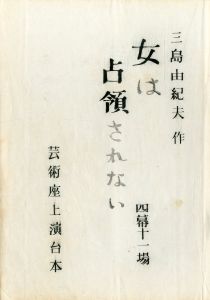 三島由紀夫 作
女は
占領されない
四幕十一場
芸術座上演台本